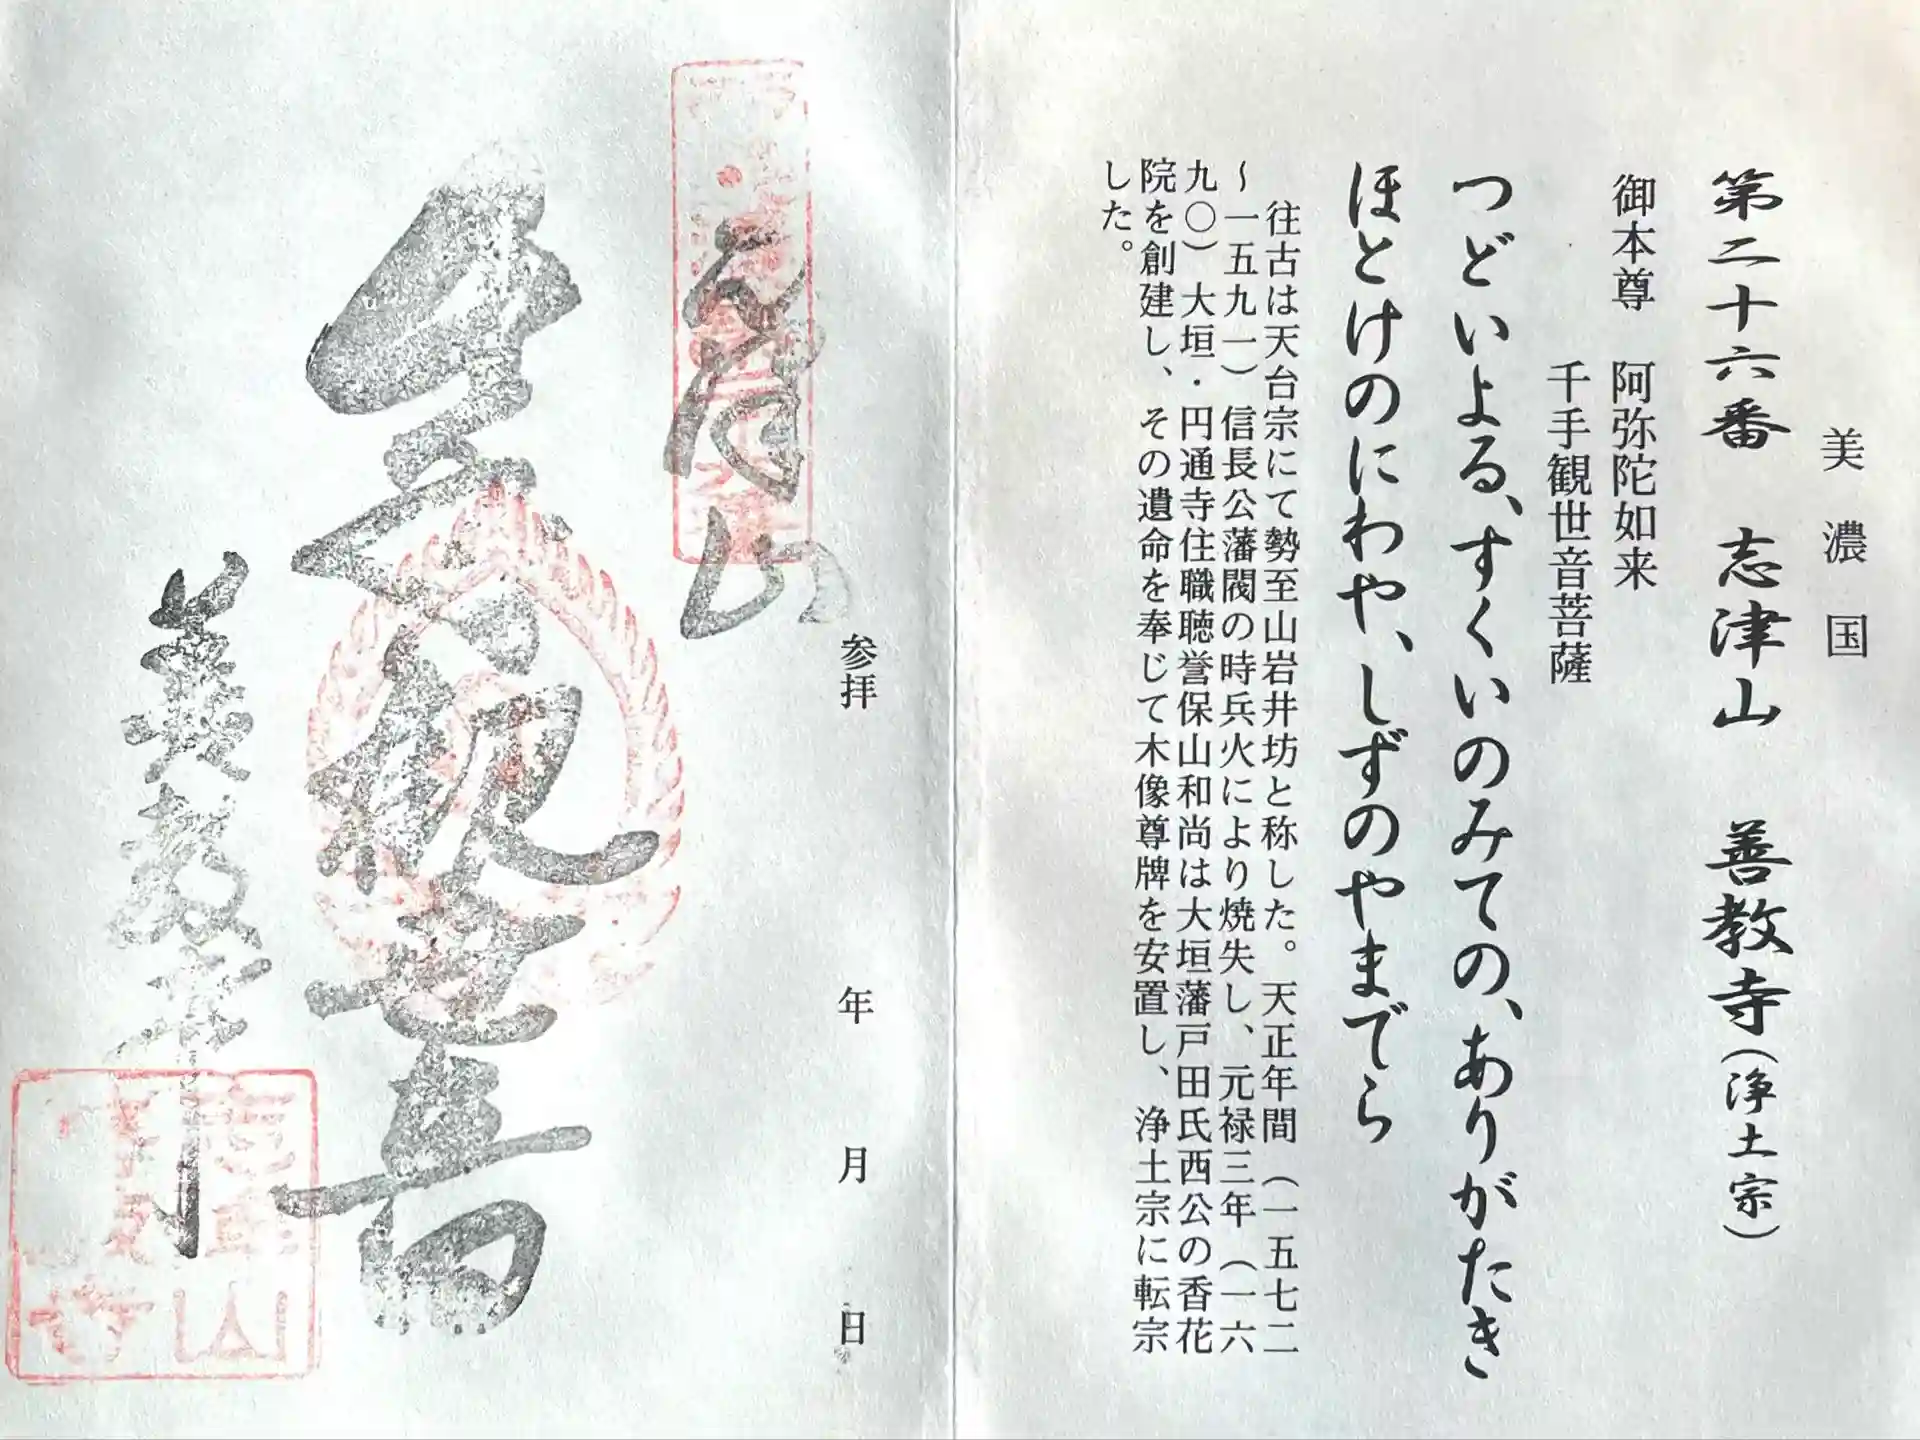 美濃国
第二十六番 志津山 善教寺(浄土宗)
御本尊 阿弥陀如来
千手観世音菩薩
つどいよる、すくいのみての、ありがたき
ほとけのにわや、しずのやまでら
往古は天台宗にて勢至山岩井坊と称した。天正年間(一五七二
〜一五九一)信長公藩閥の時兵火により焼失し、元禄三年(一六
九〇)大垣・円通寺住職聴誉保山和尚は大垣藩戸田氏西公の香花
院を創建し、その遺命を奉じて木像尊牌を安置し、浄土宗に転宗
した。
参拝 年 月 日
志津山
善教寺